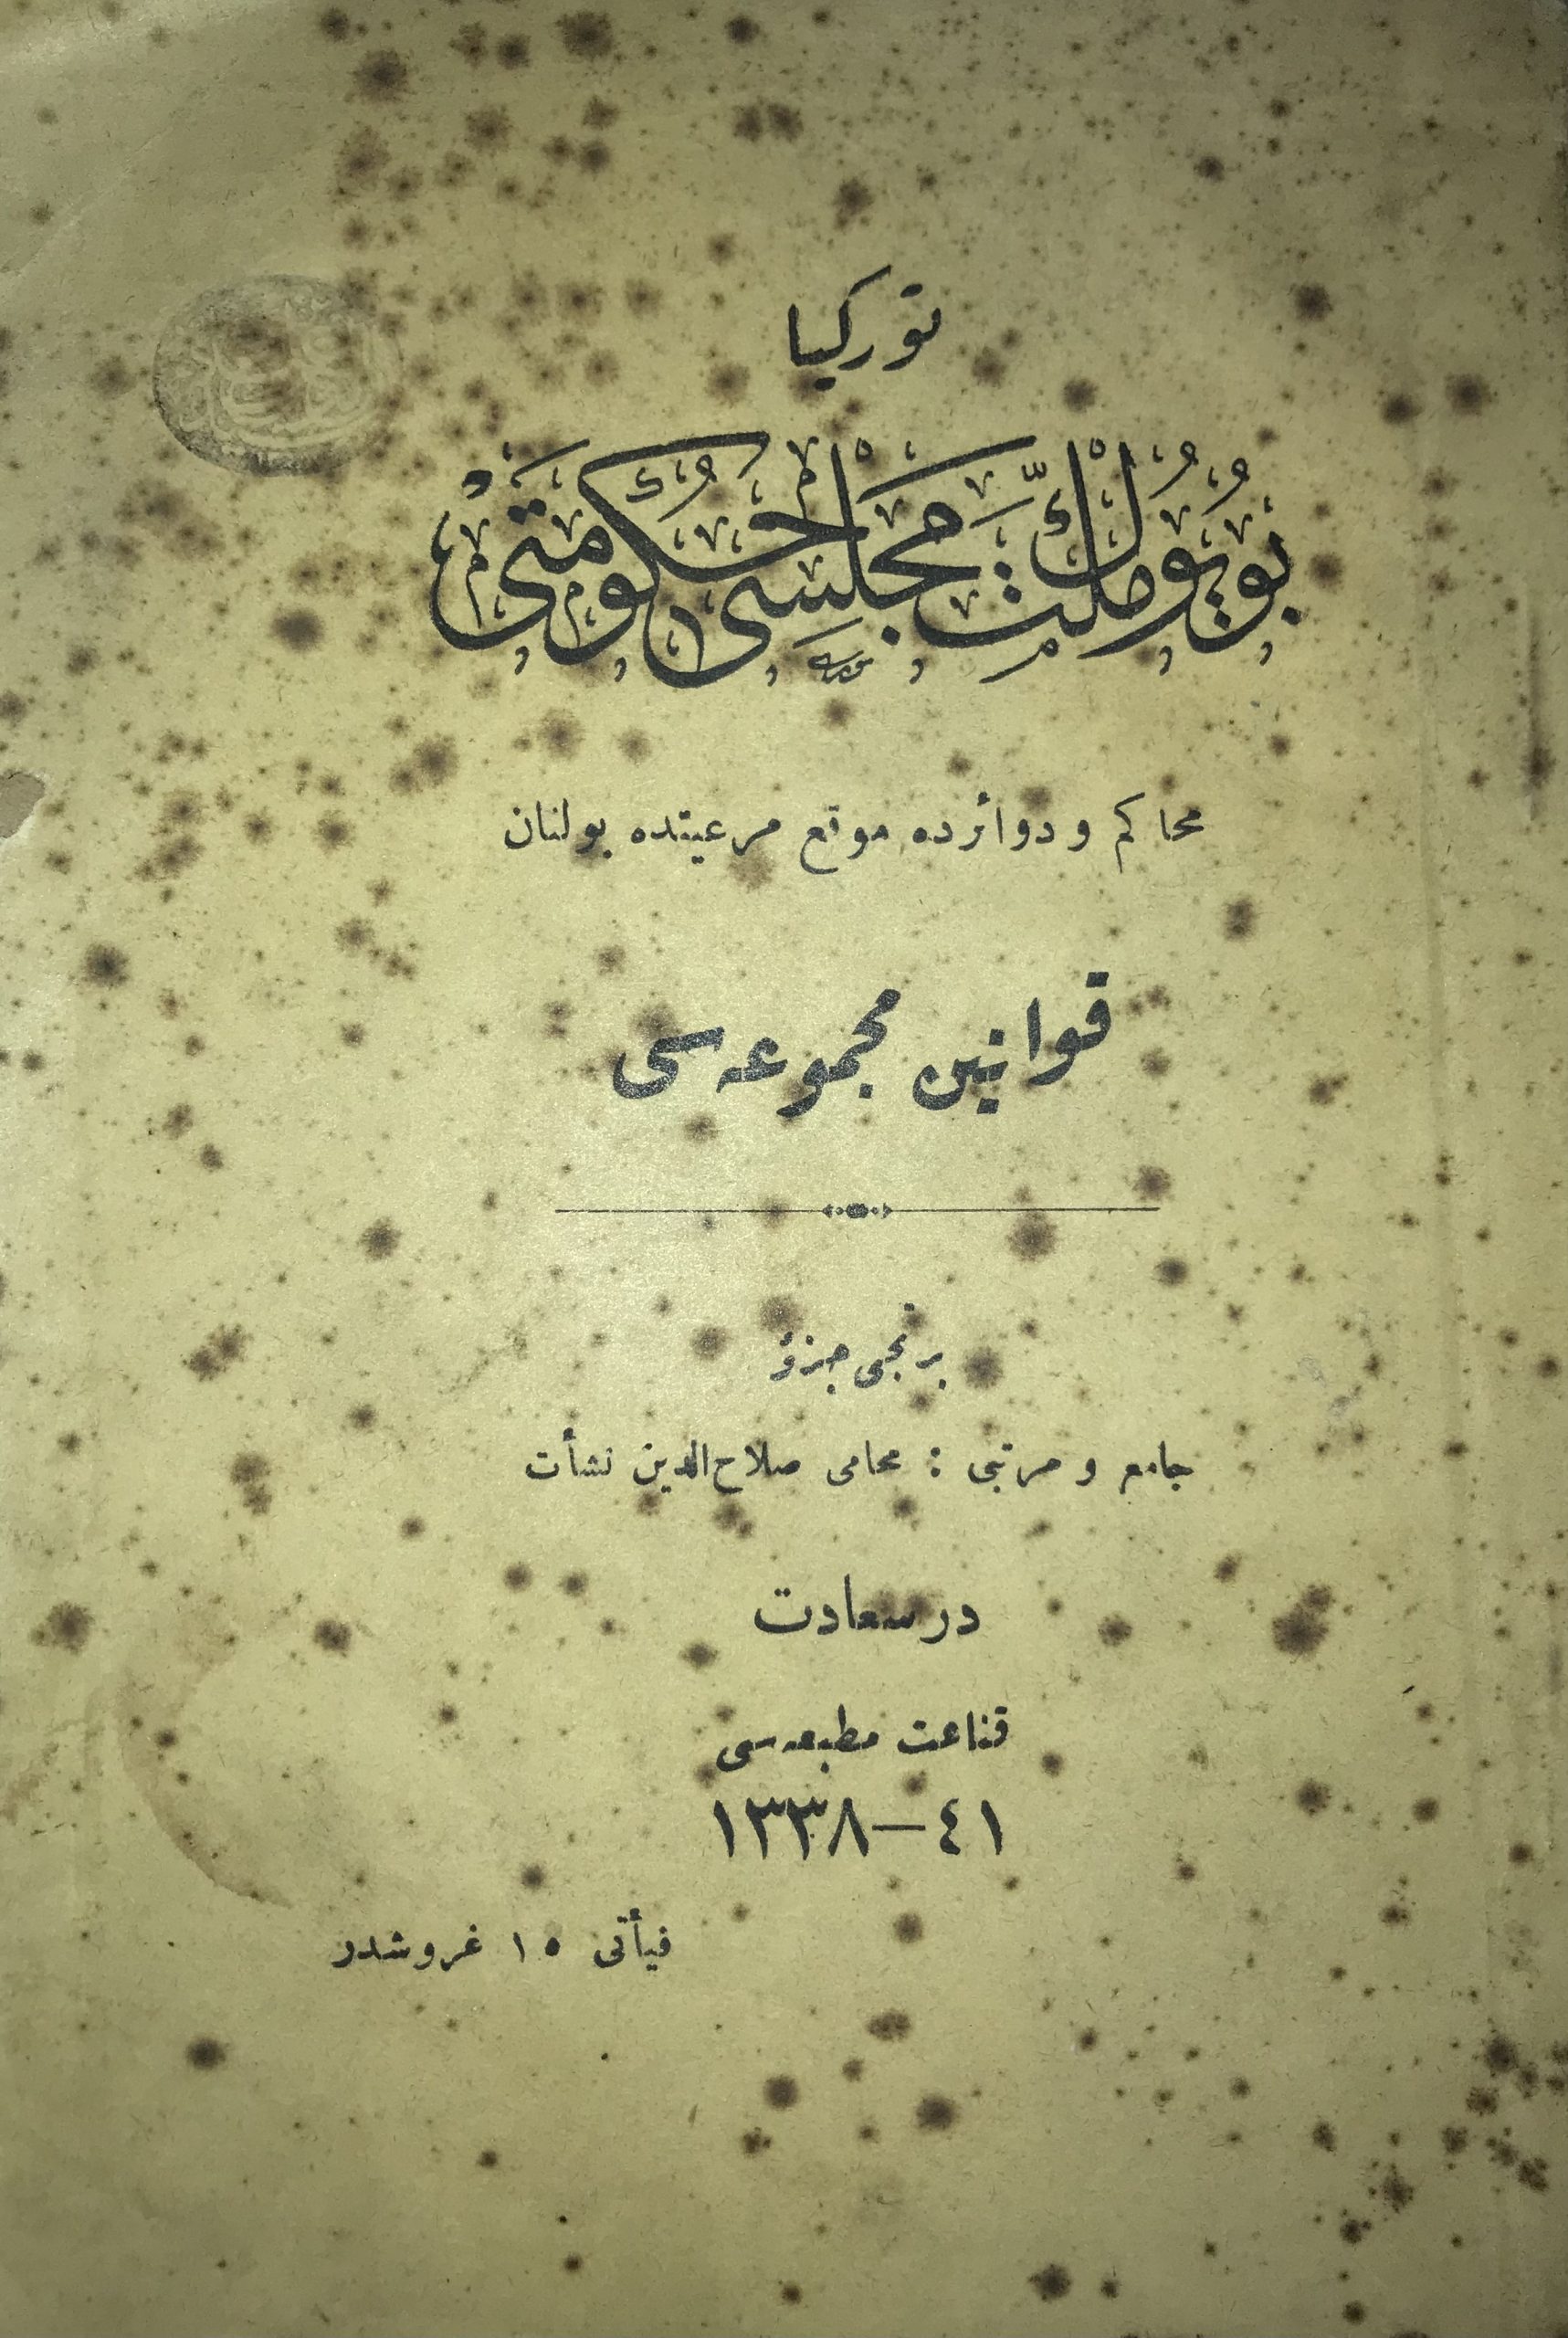 توركیا
بُویُوك مِلَّتْ مَجْلِسِی حُكُومَتِی
محاكم و دوائرده موقع مرعیتده بولنان
قوانین مجموعه‌سی
برنجی جزؤ
جامع و مرتبی : محامی صلاح‌الدین نشأت
درسعادت
قناعت مطبعه‌سی
١٣٣٨—٤١
فیأتی ١٥ غروشدر